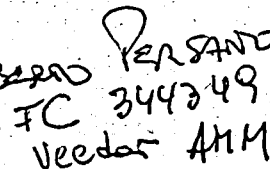 PERSANO
FC 344349
Veedor AMM